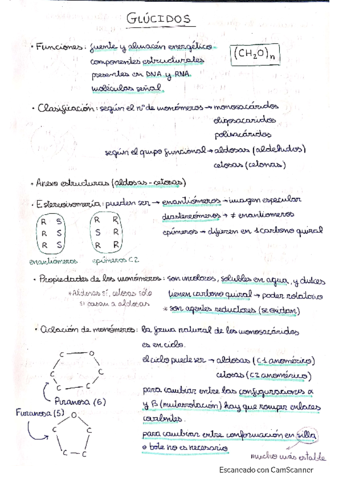 GLÚCIDOS
• Funciones: fuente y almacén energético
componentes estructurales
presentes en DNA y RNA
moléculas señal.
(CH2O)n
• Clasificación: según el nº de monómeros → monosacáridos
oligosacáridos
polisacáridos
según el grupo funcional → aldosas (aldehídos)
cetosas (cetonas)
• Anexo estructuras (aldosas - cetosas)
• Estereoisomería: pueden ser → enantiómeros → imagen especular
diastereómeros → ≠ enantiómeros
epímeros → difieren en 1 carbono quiral
R S
S R
R S
enantiómeros
R R
S R
R R
epímeros C2
• Propiedades de los monómeros: son incoloros, solubles en agua, y dulces
* Aldosas sí, cetosas sólo
si pasan a aldosas
tienen carbono quiral → poder rotatorio
* son agentes reductores (se oxidan)
• Ciclación de monómeros: la forma natural de los monosacáridos
es en ciclo.
el ciclo puede ser → aldosas (C1 anomérico)
cetosas (C2 anomérico)
Piranosa (6)
Furanosa (5)
para cambiar entre las configuraciones α
y β (mutarrotación) hay que romper enlaces
covalentes.
para cambiar entre conformación en silla
o bote no es necesario
mucho más estable
Escaneado con CamScanner